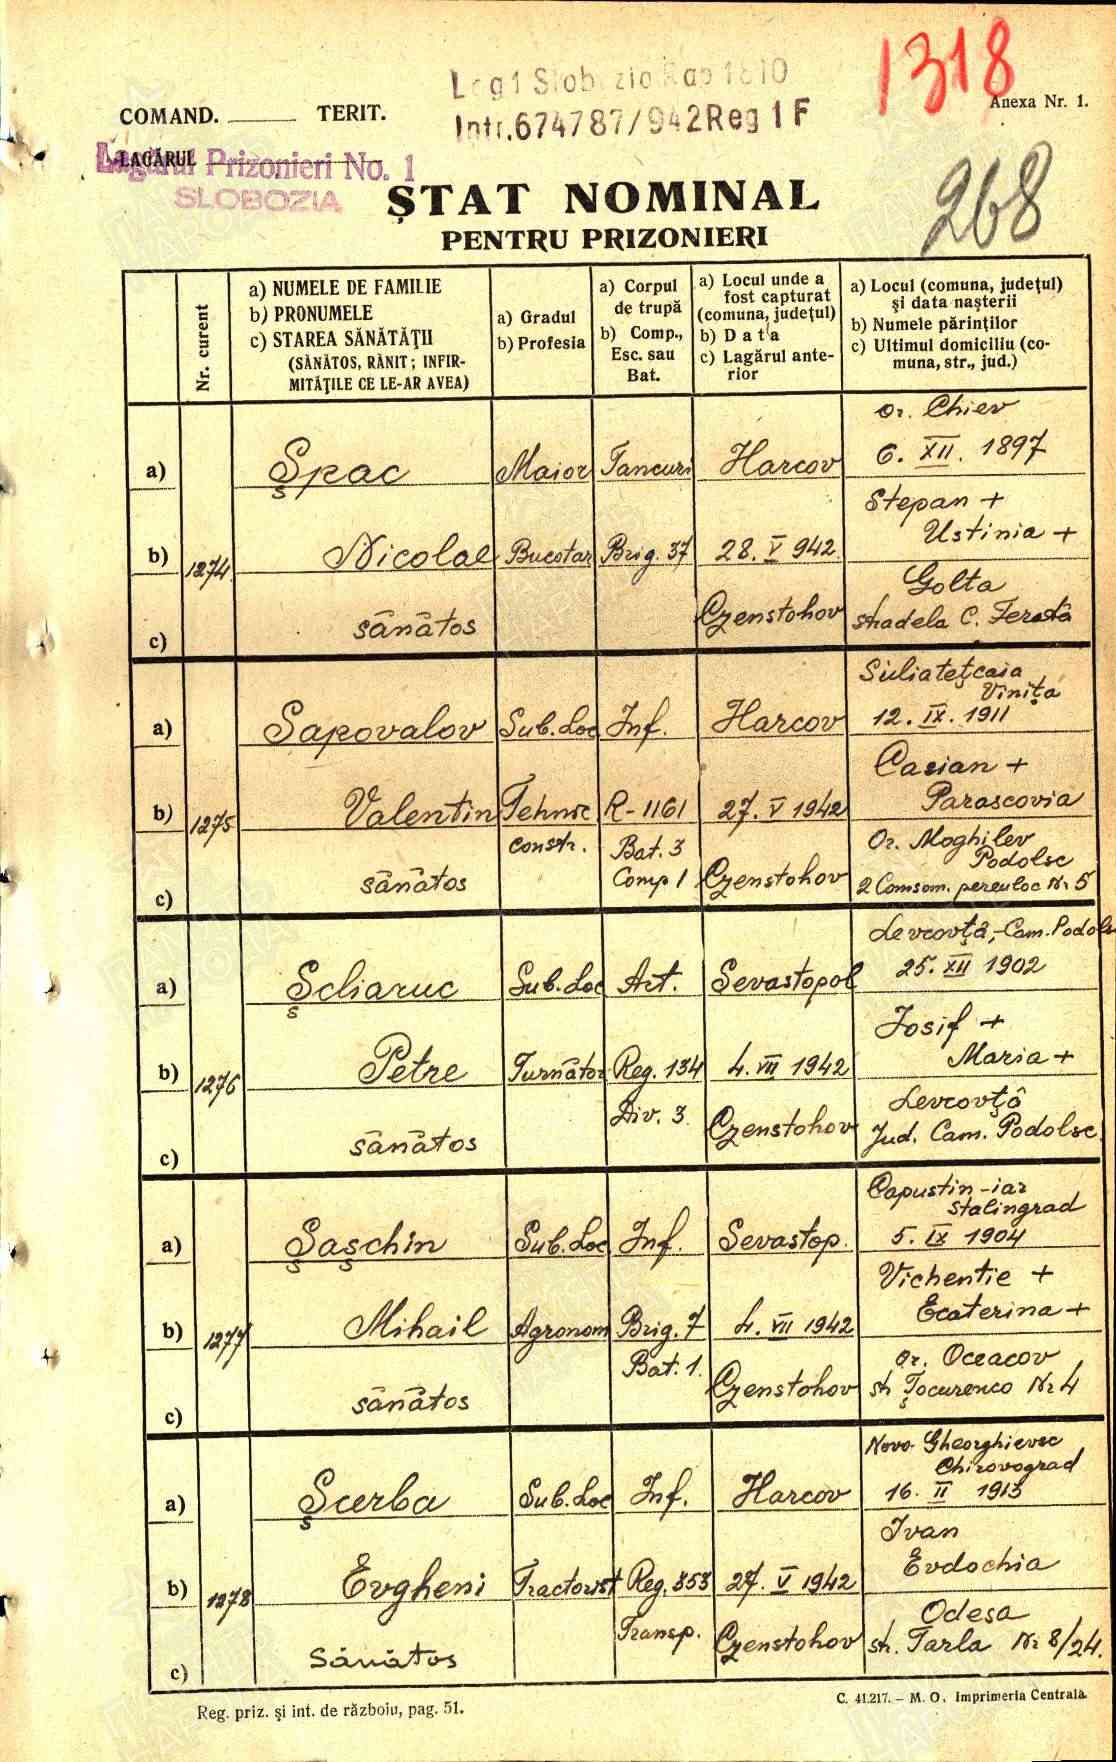 1318
Lag 1 Slobozia Rap 1810
Intr. 674787/942 Reg 1 F
Anexa Nr. 1.
COMAND. TERIT.
LAGĂRUL
Lagărul Prizonieri No. 1
SLOBOZIA
268
ȘTAT NOMINAL
PENTRU PRIZONIERI
Nr. curent
a) NUMELE DE FAMILIE
b) PRONUMELE
c) STAREA SĂNĂTĂȚII
(SĂNĂTOS, RĂNIT; INFIR-
MITĂȚILE CE LE-AR AVEA)
a) Gradul
b) Profesia
a) Corpul
de trupă
b) Comp.,
Esc. sau
Bat.
a) Locul unde a
fost capturat
(comuna, județul)
b) Data
c) Lagărul ante-
rior
a) Locul (comuna, județul)
și data nașterii
b) Numele părinților
c) Ultimul domiciliu (co-
muna, str., jud.)
1274
a) Șpac Maior Tancuri Harcov
or. Chiev
6. XII. 1897
b) Nicolae Bucotar Brig. 37 28. V 942.
Stepan +
Ustinia +
c) sănătos Czenstohov
Golta
stradela C. Ferată
1275
a) Sapovalov Sub. Loc Inf. Harcov
Suliatețcaia
Vinița
12. IX. 1911
b) Valentin Tehnic R-1161 27. V 1942
constr. Bat. 3
Casian +
Parascovia
c) sănătos Comp 1 Czenstohov
Or. Moghilev
Podolsc
2 Comsom. pereuloc Nr 5
1276
a) Șcliaruc Sub. Loc Art. Sevastopol
Levcovță, -Cam. Podols
25. XII 1902
b) Petre Turnător Reg. 134 4. VII 1942
Div. 3.
Iosif +
Maria +
c) sănătos Czenstohov
Levcovță
Jud. Cam. Podolsc.
1277
a) Șașchin Sub. Loc Inf. Sevastop.
Capustin-iar
Stalingrad
5. IX 1904
b) Mihail Agronom Brig. 7 4. VII 1942
Bat. 1.
Vichentie +
Ecaterina +
c) sănătos Czenstohov
or. Oceacov
str Țocurenco Nr 4
1278
a) Șcerba Sub. Loc Inf. Harcov
Novo-Gheorghievsc
Chirovograd
16. II 1913
b) Evgheni Tractorist Reg. 353 27. V 1942
Transp.
Ivan
Evdochia
c) Sănătos Czenstohov
Odesa
str. Tarla Nr 8/24.
Reg. priz. și int. de războiu, pag. 51.
C. 41.217. – M. O. Imprimeria Centrală.